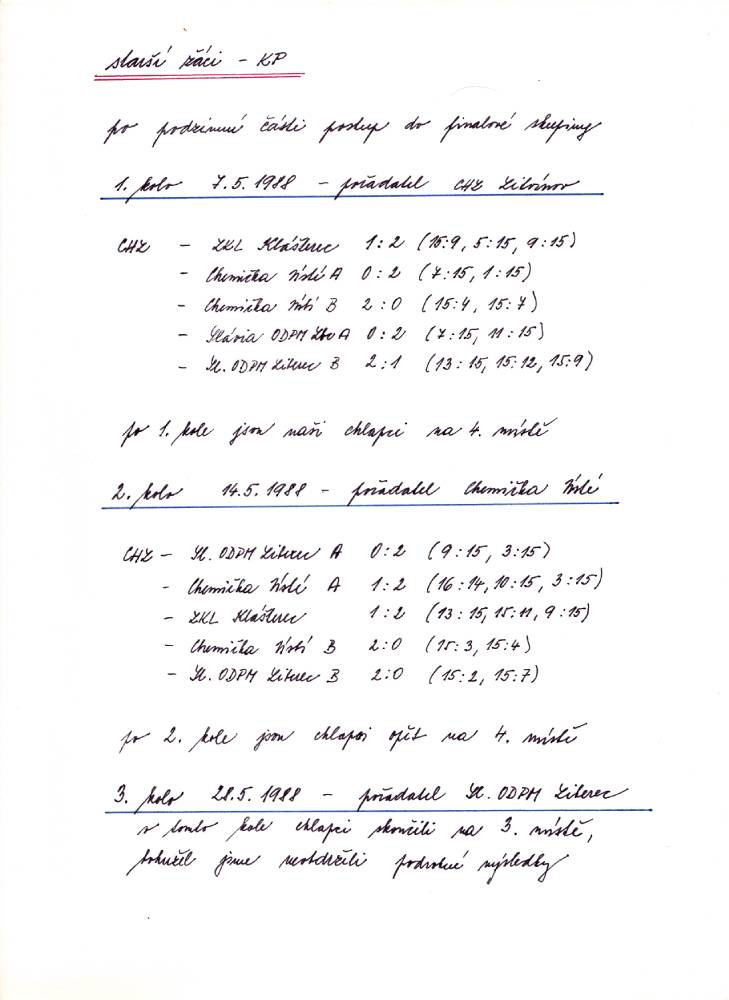 starší žáci - KP
po podzimní části postup do finalové skupiny
1. kolo 7.5.1988 - pořadatel CHZ Litvínov
CHZ - ZKL Klášterec 1:2 (15:9, 5:15, 9:15)
- Chemička Ústí A 0:2 (7:15, 1:15)
- Chemička Ústí B 2:0 (15:4, 15:7)
- Slávia ODPM Lbc A 0:2 (7:15, 11:15)
- Sl. ODPM Liberec B 2:1 (13:15, 15:12, 15:9)
po 1. kole jsou naši chlapci na 4. místě
2. kolo 14.5.1988 - pořadatel Chemička Ústí
CHZ - Sl. ODPM Liberec A 0:2 (9:15, 3:15)
- Chemička Ústí A 1:2 (16:14, 10:15, 3:15)
- ZKL Klášterec 1:2 (13:15, 15:11, 9:15)
- Chemička Ústí B 2:0 (15:3, 15:4)
- Sl. ODPM Liberec B 2:0 (15:2, 15:7)
po 2. kole jsou chlapci opět na 4. místě
3. kolo 28.5.1988 - pořadatel Sl. ODPM Liberec
v tomto kole chlapci skončili na 3. místě,
bohužel jsme neobdrželi podrobné výsledky